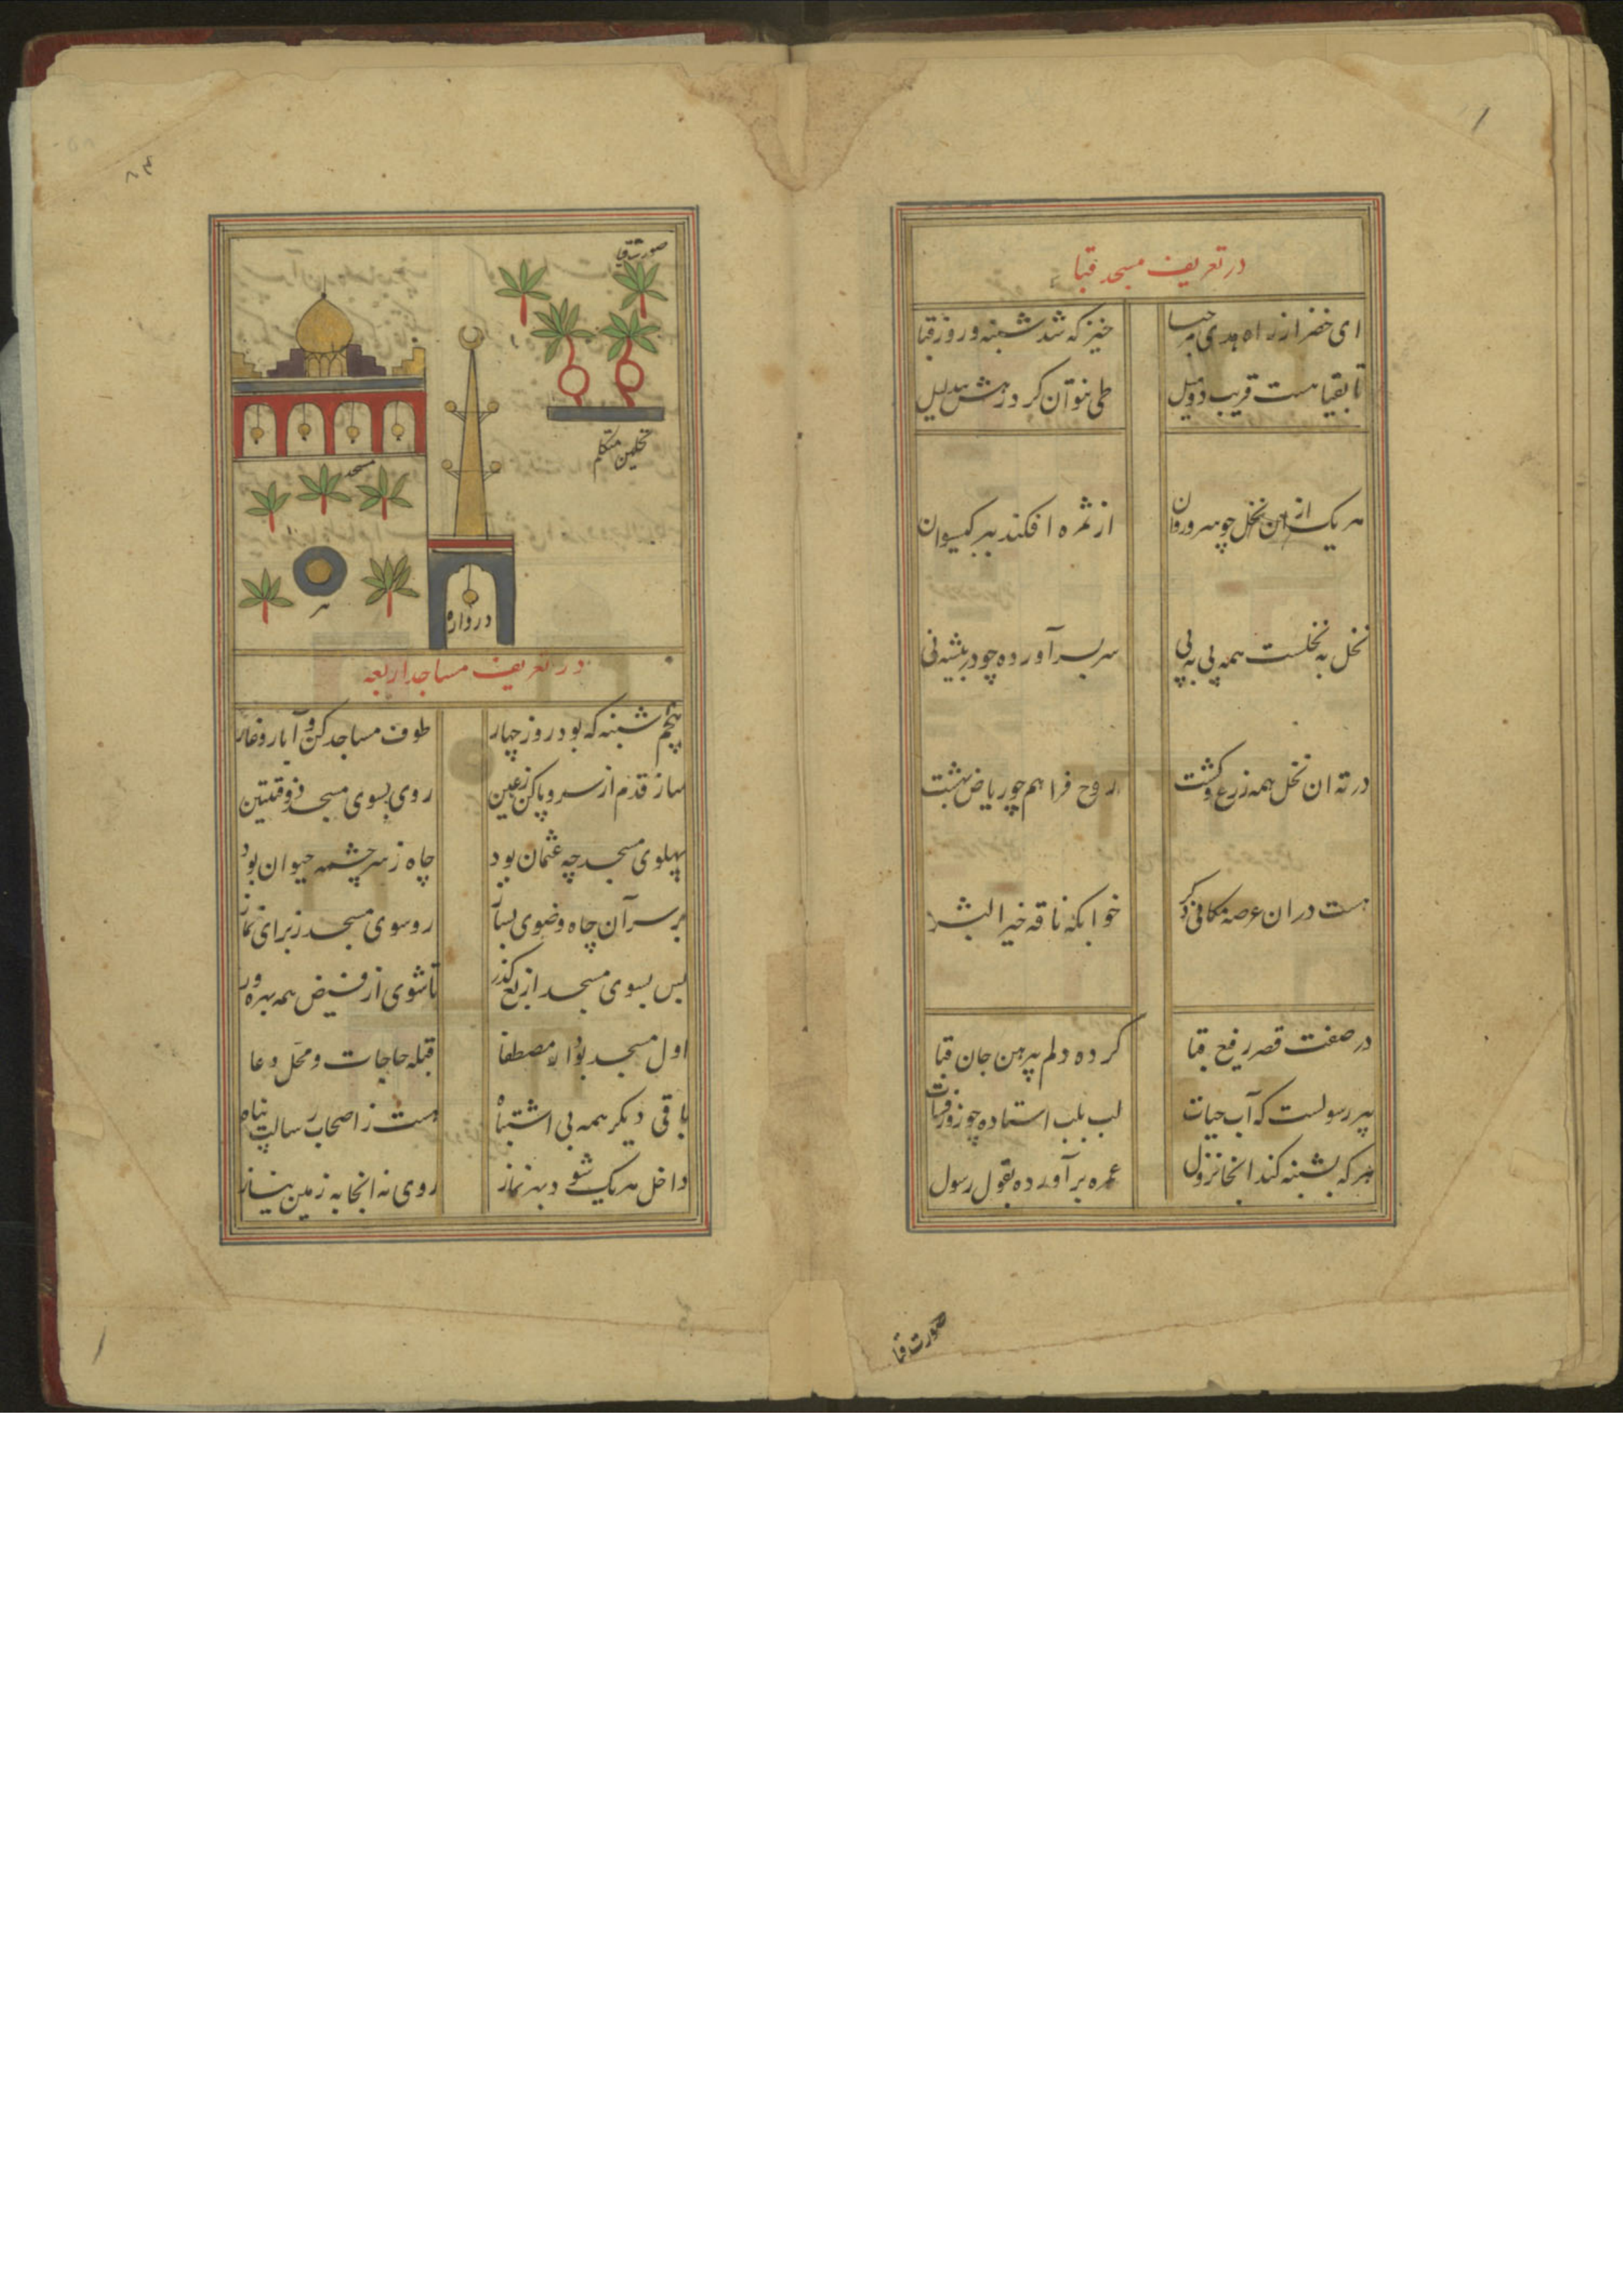 در تعریف مسجد قبا
ای خضر از راه هدی مرحبا خیز که شد شنبه و روز قبا
تا بقبا هست قریب دو میل طی نتوان کرد رهش بی دلیل
هر یک از ان نخل چو سرو روان از ثمره افکنده بر کیسوان
نخل به نخلست همه پی به پی سر بسر آورده چو در بیشه نی
در ته ان نخل همه زرع و کشت روح فزا هم چو ریاض بهشت
هست در ان عرصه مکانی دکر خوابکه ناقه خیر البشر
در صفت قصر رفیع قبا کرده دلم پیرهن جان قبا
بیر رسولست که آب حیات لب بلب استاده چو زو فرات
هر که بشنبه کند انجا نزول عمره برآورده بقول رسول
صورت قبا
صورت قبا
نخلین متکلم
مسجد
بیر
دروازه
در تعریف مساجد اربعه
پنجم شنبه که بود روز چهار طوف مساجد کن و آبار و غار
ساز قدم از سر و پا کن ز عین روی بسوی مسجد ذو قبلتین
پهلوی مسجد چه عثمان بود چاه ز سر چشمه حیوان بود
بر سر آن چاه وضوی بساز رو سوی مسجد ز برای نماز
پس بسوی مسجد اربع کذر تا شوی از فیض همه بهره ور
اول مسجد بود از مصطفا قبله حاجات و محل دعا
باقی دیکر همه بی اشتباه هست ز اصحاب رسالت پناه
داخل هر یک شو و بهر نماز روی نه انجا به زمین نیاز